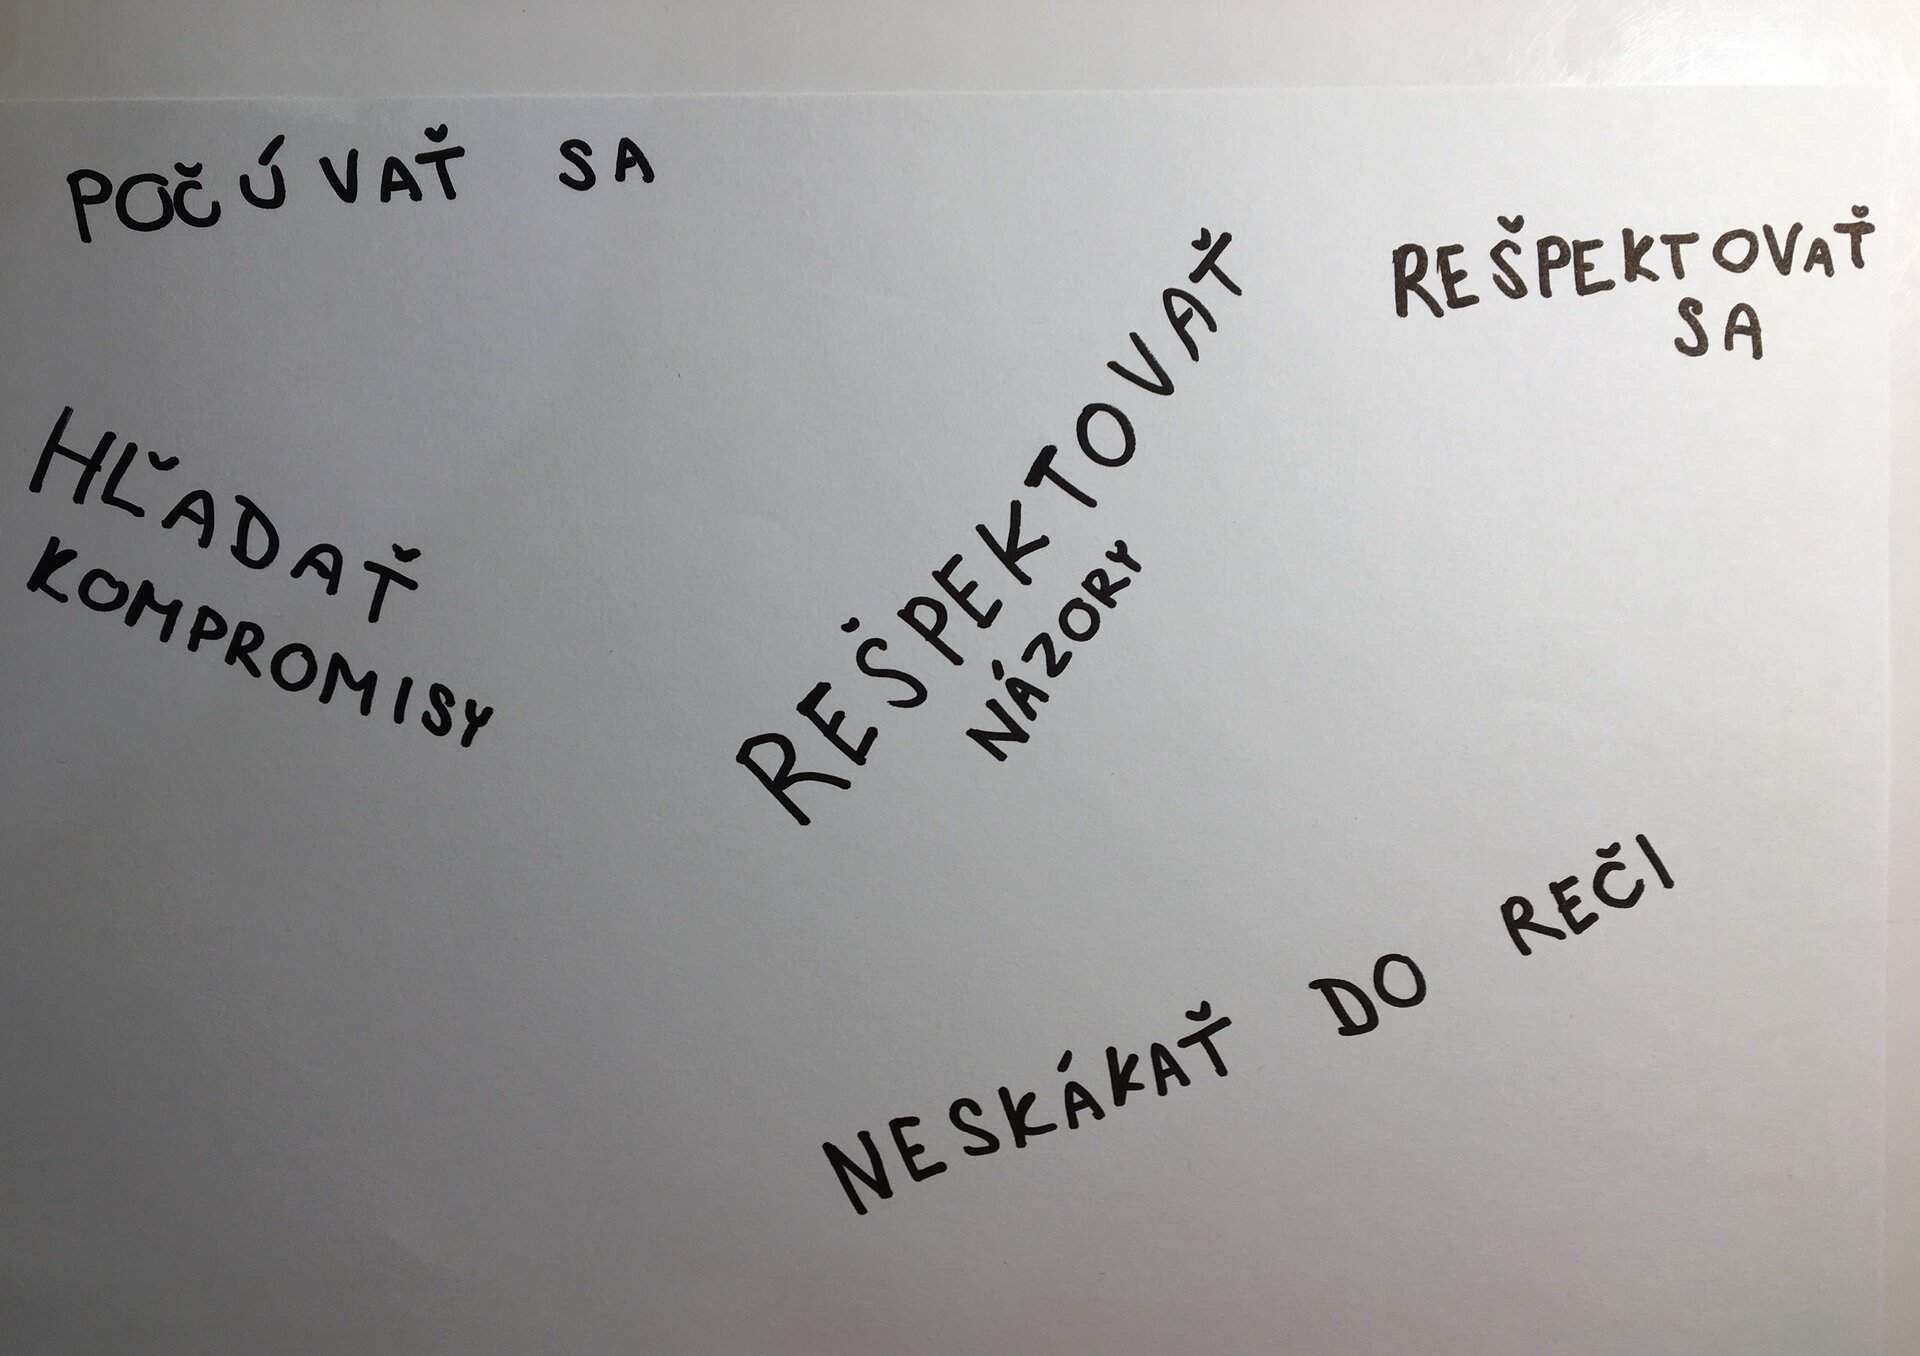 POČÚVAŤ SA
REŠPEKTOVAŤ
SA
HĽADAŤ
KOMPROMISY
REŠPEKTOVAŤ
NÁZORY
NESKÁKAŤ DO REČI